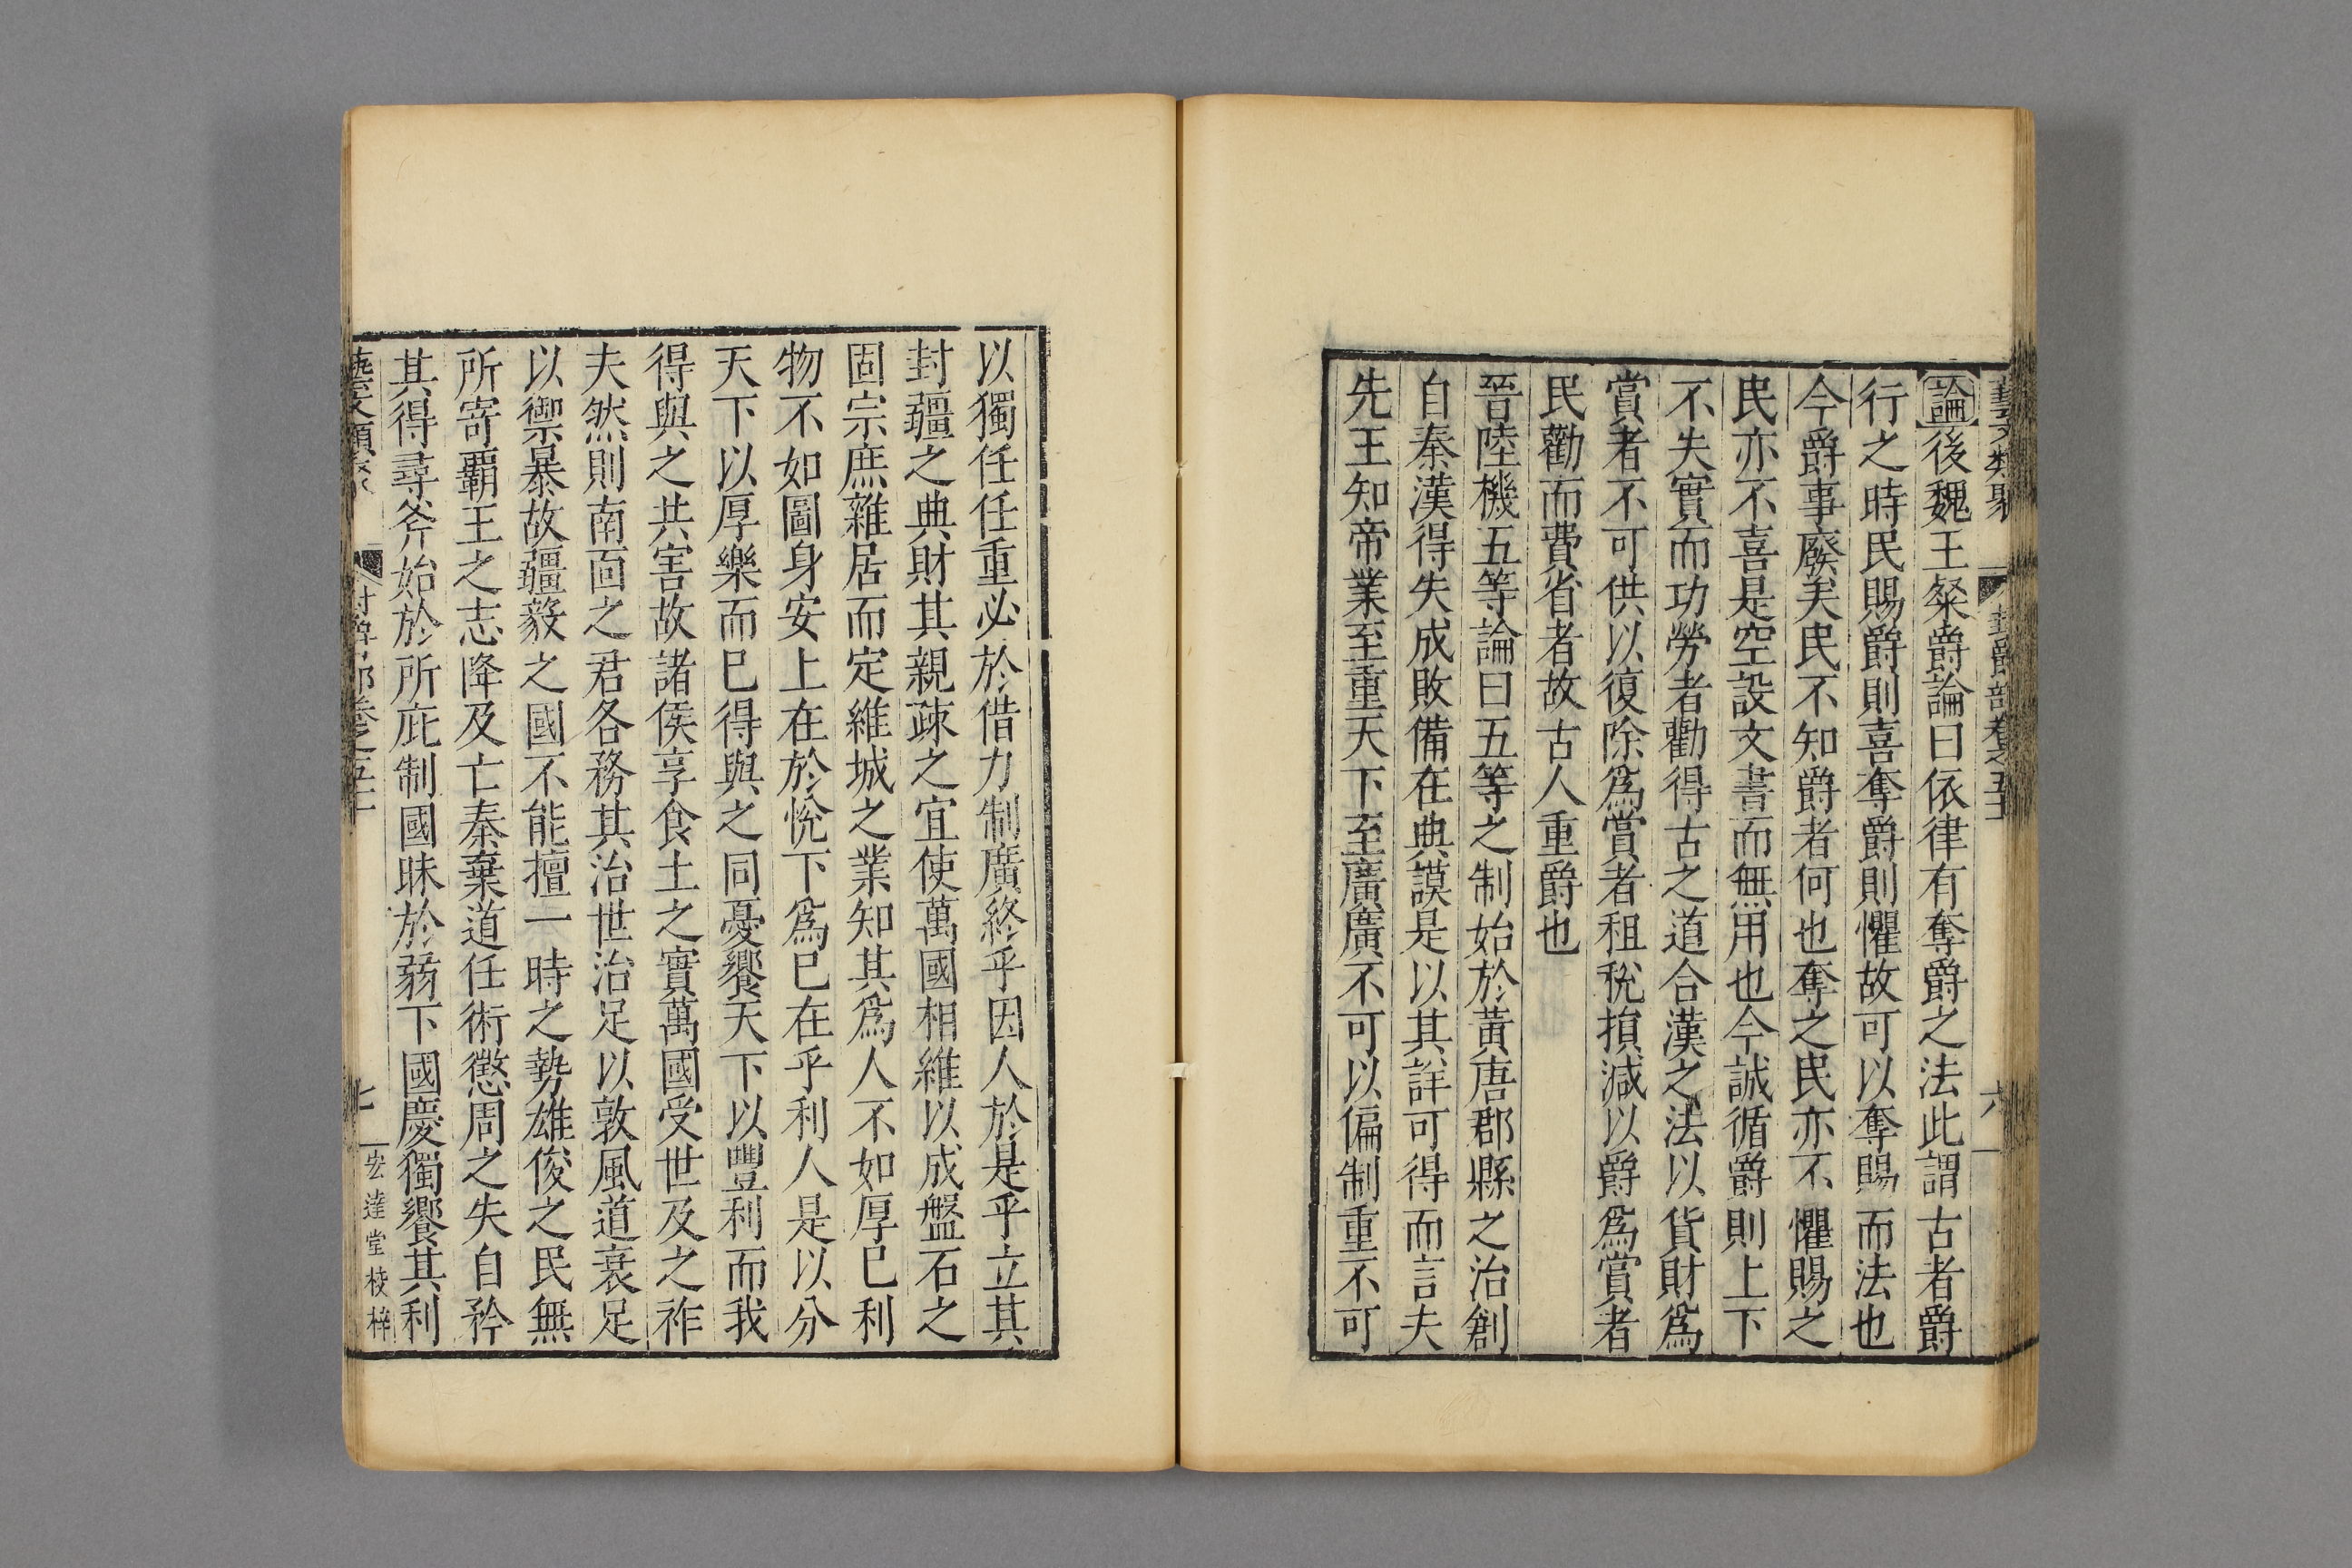 藝文類聚 封爵部卷之五十一 六
論後魏王粲爵論曰依律有奪爵之法此謂古者爵
行之時民賜爵則喜奪爵則懼故可以奪賜而法也
今爵事廢矣民不知爵者何也奪之民亦不懼賜之
民亦不喜是空設文書而無用也今誠循爵則上下
不失實而功勞者勸得古之道合漢之法以貨財爲
賞者不可供以復除爲賞者租稅損減以爵爲賞者
民勸而費省者故古人重爵也
晉陸機五等論曰五等之制始於黃唐郡縣之治創
自秦漢得失成敗備在典謨是以其詳可得而言夫
先王知帝業至重天下至廣廣不可以偏制重不可
以獨任任重必於借力制廣終乎因人於是乎立其
封疆之典財其親疎之宜使萬國相維以成盤石之
固宗庶雜居而定維城之業知其爲人不如厚已利
物不如圖身安上在於悅下爲已在乎利人是以分
天下以厚樂而已得與之同憂饗天下以豐利而我
得與之共害故諸侯享食土之實萬國受世及之祚
夫然則南面之君各務其治世治足以敦風道衰足
以禦暴故疆毅之國不能擅一時之勢雄俊之民無
所寄覇王之志降及亡秦棄道任術懲周之失自矜
其得尋斧始於所庇制國昧於弱下國慶獨饗其利
藝文類聚 封爵部卷之五十一 七 宏達堂校梓